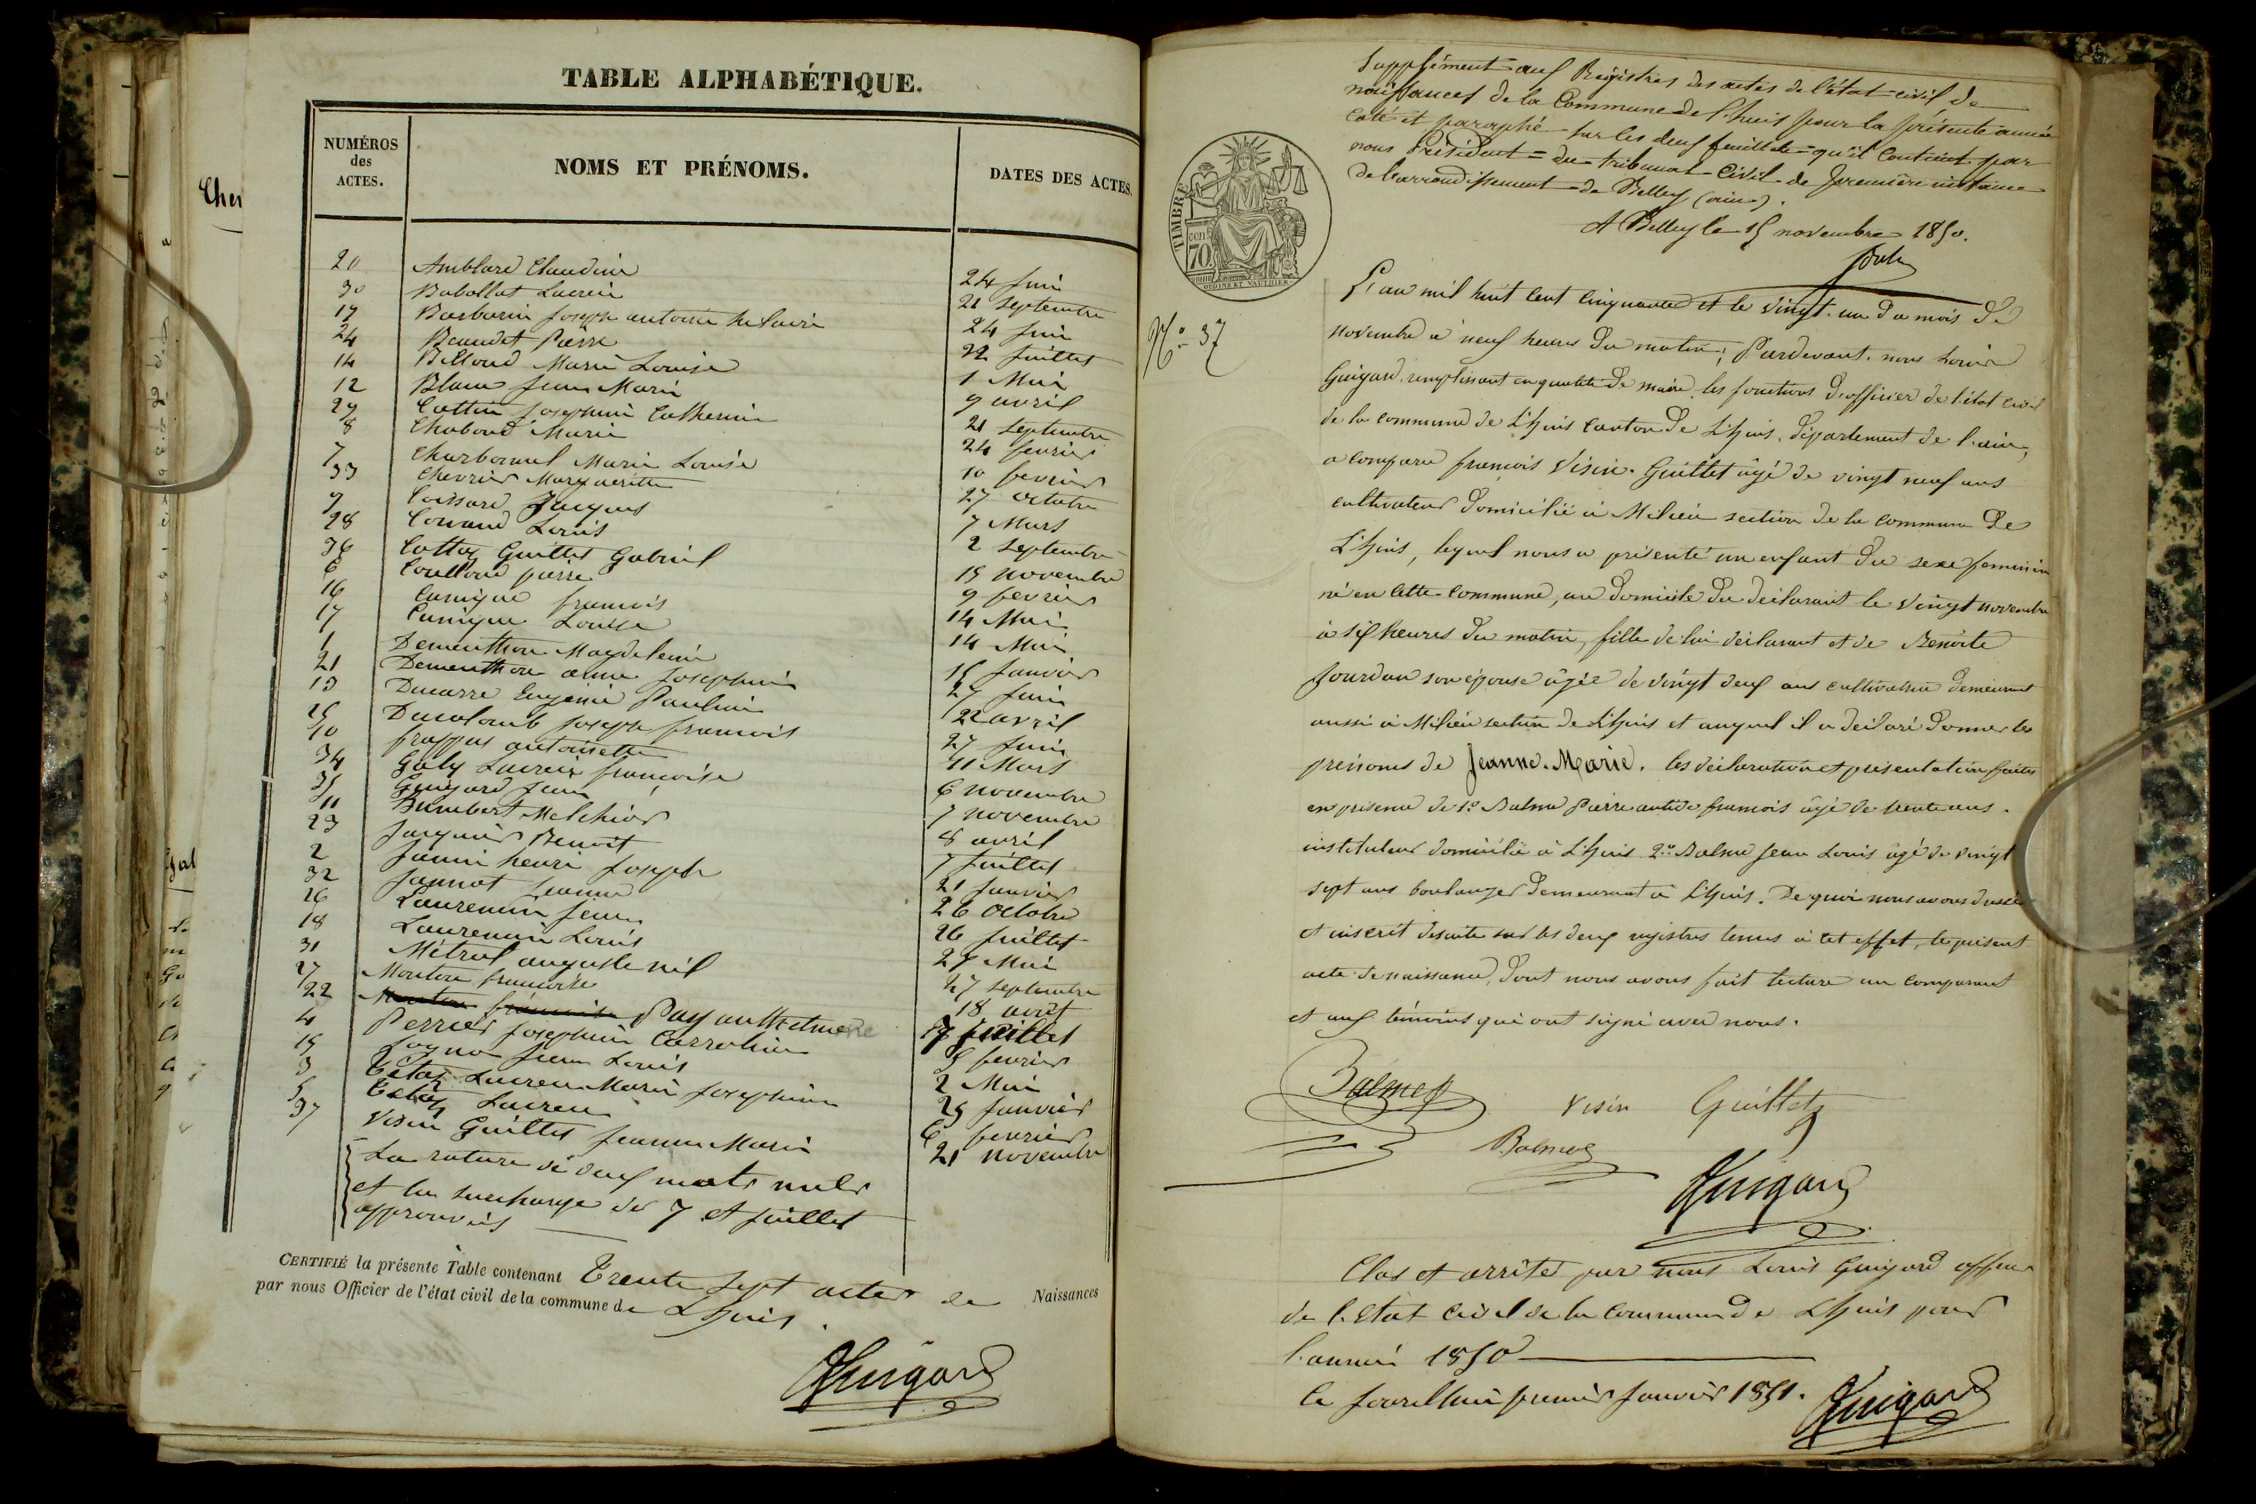 TABLE ALPHABÉTIQUE.
NUMÉROS des ACTES.
NOMS ET PRÉNOMS.
DATES DES ACTES.
20 Amblard Claudine 24 juin
30 Babollat Lucrein 21 septembre
19 Barbarin Joseph antoine hilaire 24 juin
24 Beaudet Pierre 22 juillet
14 Billoud Marie Louise 1 Mai
12 Blanc Jean Marie 9 avril
29 Cattin Josephine Catherine 21 septembre
8 Chaboud Marie 24 fevrier
7 Charbonnel Marie Louise 10 fevrier
33 Chevrier Marguerite 27 octobre
9 Coissard Jacques 7 Mars
28 Conand Louis 2 septembre
36 Cottaz Guillet Gabriel 15 novembre
6 Coulloud pierre 9 fevrier
16 Cunique francois 14 Mai
17 Cunique Louise 14 Mai
1 Dementhon Magdeleine 15 janvier
21 Dementhon aime Josephine 27 juin
13 Ducarre Eugenie Pauline 22 avril
25 Ducolomb Joseph francois 27 juin
10 frappas antoinette 11 Mars
34 Galy Lucrein françoise 6 novembre
35 Guigard Jean 7 novembre
11 Humbert Melchior 8 avril
23 Jacquier Benoit 7 juillet
2 Janin henri Joseph 21 janvier
32 Jannot Jeanne 26 octobre
26 Laurencin Jean 26 juillet
18 Laurencin Louis 27 Mai
31 Métral auguste nél 27 septembre
27 Mouton francoise 18 août
22 Mouton francoise Pay anthelme 7 juillet
4 Perrier Josephine Carroline 5 fevrier
15 Jean Louis 2 Mai
3 Tétaz Lucrein Marie Josephine 25 janvier
5 Tetaz Lucrein 6 fevrier
37 Visin Guillet Jeanne Marie 21 novembre
La rature de deux mots nuls
et la surcharge des 7 et juillet
approuvées
CERTIFIÉ la présente Table contenant Trente sept actes de Naissances
par nous Officier de l'état civil de la commune de Lhuis.
LGuigard
Supplément aux Registres des actes de l'état-civil de
naissances de la Commune de l'huis pour la présente année
coté et paraphé sur les deux feuillets qu'il contient par
nous Président du tribunal Civil de première instance
de l'arrondissement de Belley (ain).
A Belley le 15 novembre 1850.
TIMBRE
cen. 70
N.º 37
L'an mil huit cent cinquante et le vingt-un du mois de
novembre à neuf heures du matin; Pardevant nous Louis
Guigard, remplissant en qualité de maire, les fonctions d'officier de l'état civil
de la commune de L'huis canton de L'huis, département de l'ain,
a comparu francois Visin-Guillet âgé de vingt neuf ans
cultivateur domicilié à Milieu section de la commune de
L'huis, lequel nous a présenté un enfant du sexe feminin
né en cette commune, au domicile du déclarant le vingt novembre
à six heures du matin, fille de lui déclarant et de Benoite
Jourdan son épouse âgée de vingt deux ans cultivatrice demeurant
aussi à Milieu section de L'huis et auquel il a déclaré donner les
prénoms de Jeanne-Marie. les déclaration et présentation faites
en présence de 1.º Balme Pierre francois âgé de trente ans.
instituteur domicilié à L'huis 2.º Balme Jean Louis âgé de vingt
sept ans boulanger demeurant à L'huis. De quoi nous avons dressé
et inscrit desuite sur les deux registres tenus à cet effet, le présent
acte de naissance, dont nous avons fait lecture au comparant
et aux témoins qui ont signé avec nous.
Balme
visin Guillet
Balme
LGuigard
Clos et arrêté par nous Louis Guigard officier
de l'etat civil de la commune de Lhuis pour
l'année 1850
Ce jourdhui premier Janvier 1851.
LGuigard